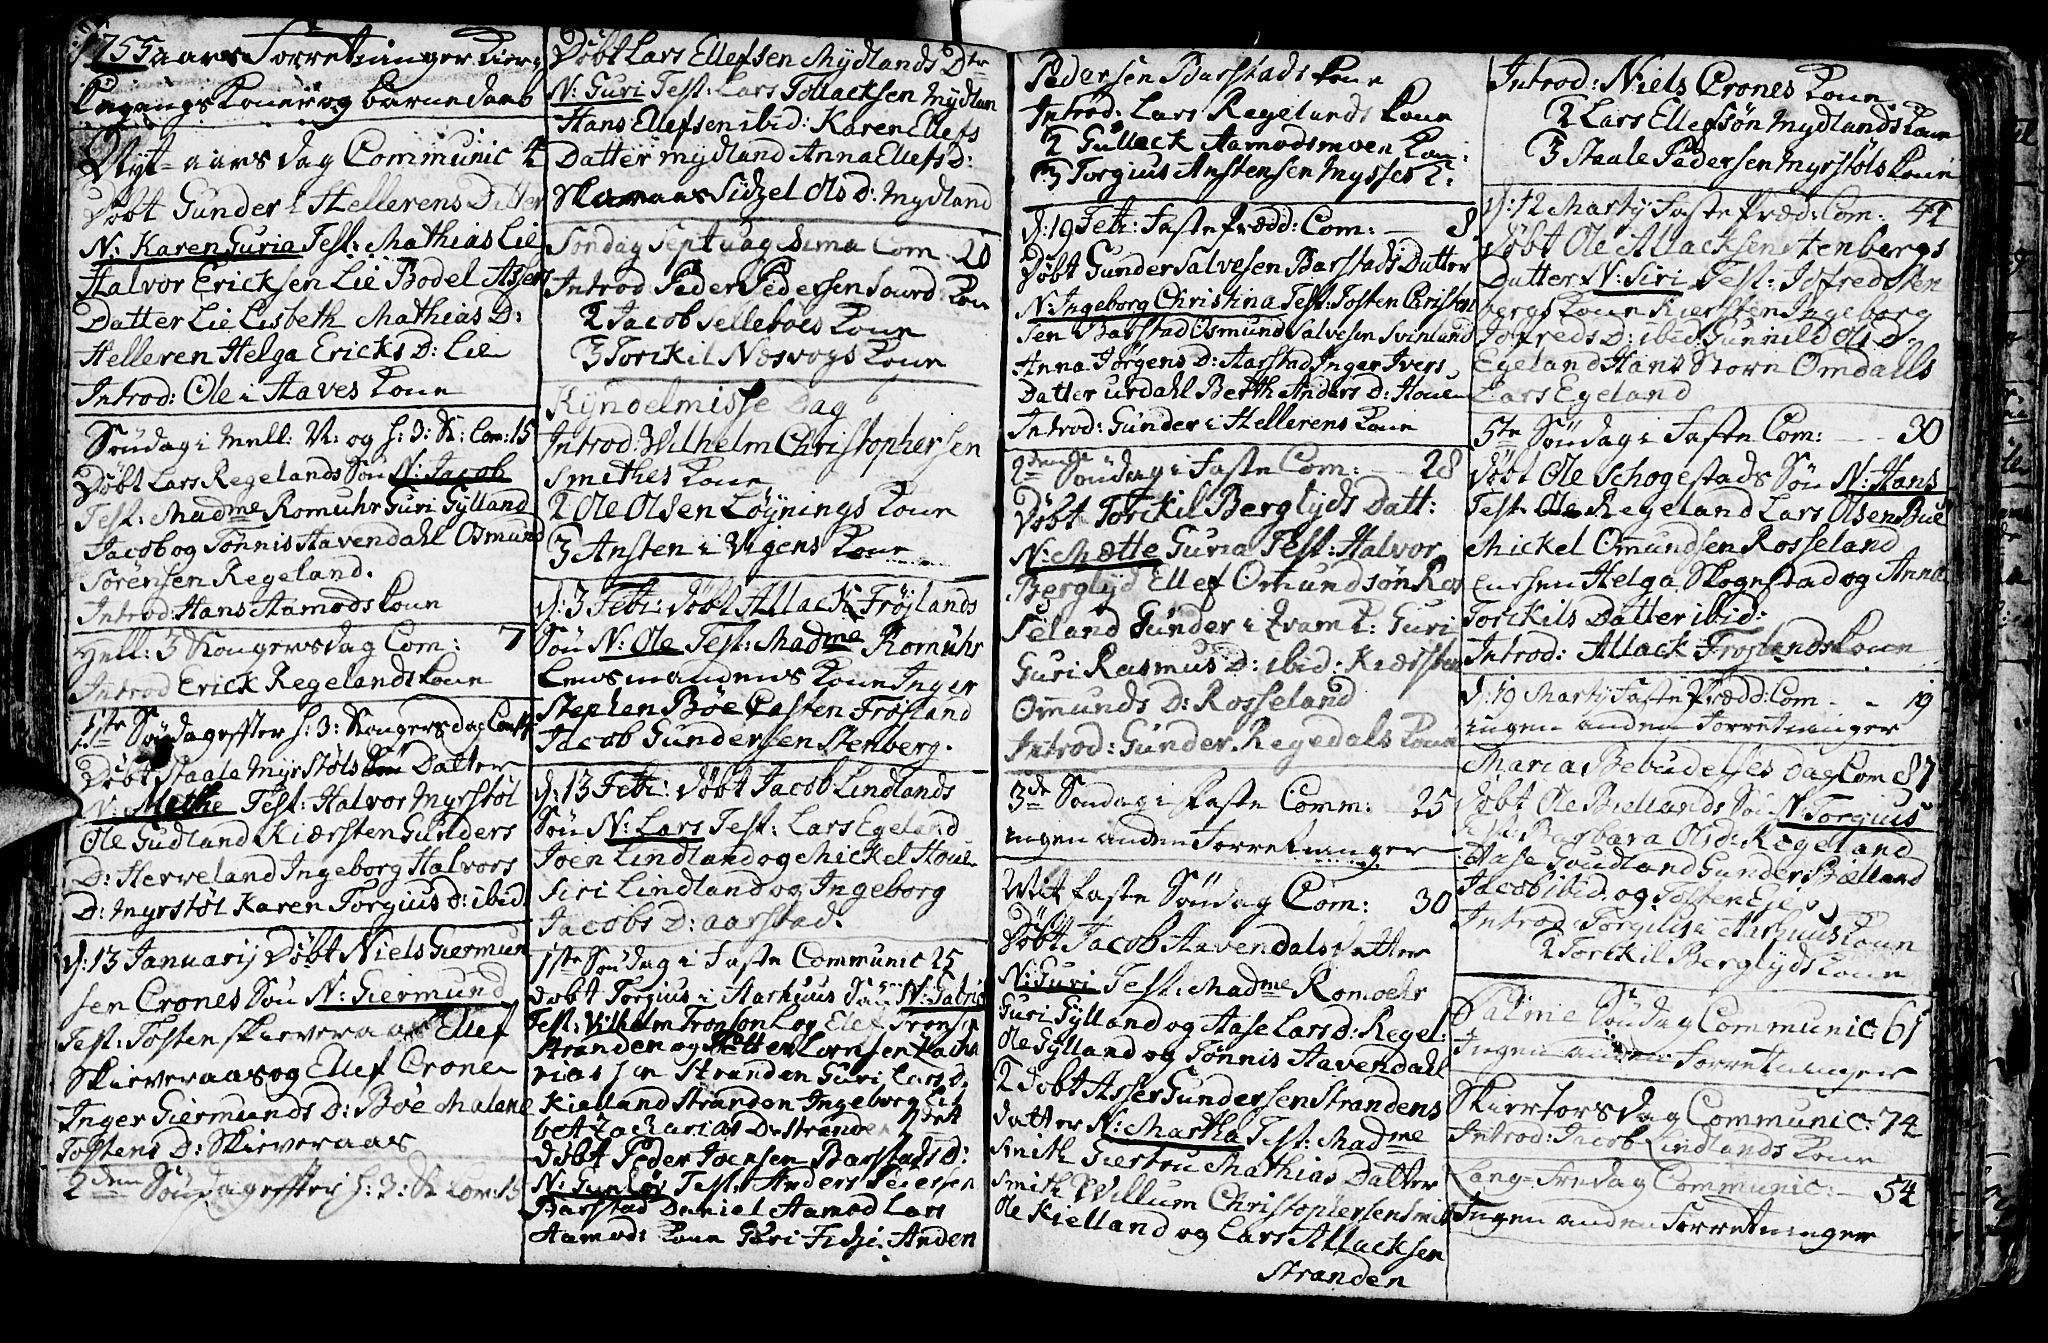 1755 aars Forretninger Kier¬
kegangs Koner og barnedaab
Nyt-aars dag Communic 4
Døbt Gunder i Hellerens Datter
N: Karen Guria Test: Mathias Lie
Halvor Ericksen Lie Bodel Assers
Datter Lie Lisbeth Mathias D:
Helleren Helga Ericks D: Lie
Introd: Ole i Haves Kone
Søndag i Mell: N: og h: 3: K: Com: 15
Døbt Lars Regelands Søn N: Jacob
Test: Madme Romuhr Guri Gylland
Jacob og Tønnis Havendahl Osmund
Sørensen Regeland.
Introd: Hans Aamods Kone
Hell: 3 Kongersdag Com: 7
Introd Erick Regelands Kone
1ste Søndag effter h: 3: Kongersdag Com
Døbt Staale Myrstøls Datter
N: Methe Test: Halvor Myrstøl
Ole Gudland Kiersten Gunders
D: Herveland Ingeborg Halvors
D: Myrstøl Karen Torgius D: ibid.
d: 13 Januarij Døbt Niels Giermun
sen Crones Søn N: Giermund
Test: Tosten Skieveraas Ellef
Skieveraas og Ellef Crone
Inger Giermunds D: Bøe Malene
Tostens D: Skieveraas
2den Søndag effter h: 3: K Com: 15
Døbt Lars Ellefsen Mydlands Dtr
N: Guri Test: Lars Tollacksen Mydlan
Hans Ellefsen ibid: Karen Ellefs
Datter Mydland Anna Ellefs D:
Skaraas Sidzel Ols D: Mydland
Søndag Septuagesima Com 20
Introd Peder Pedersen Kone
2 Jacob Kone
3 Torckil Næsvogs Kone
Kyndelmisse Dag
Introd: Wilhelm Christophersen
Smithes Kone
2 Ole Olsen Løynings Kone
3 Ansten i Vigens Kone
d: 3 Febr: døbt Attack Frøjlands
Søn N: Ole Test: Madme Romuhr
Lensmandens Kone Inger
Stephen Bøe Casten Frøjland
Jacob Gundersen Stenberg.
d: 13 Febr: døbt Jacob Lindlands
Søn N: Lars Test: Lars Egeland
Joen Lindland og Mickel Houe
Siri Lindland og Ingeborg
Jacobs D: Aarstad.
1ste Søndag i Faste Communic 25
døbt Torgius i Aarhuus Søn N: Gabriel
Test: Vilhelm Tronson Log Elef Trons
Stranden og Lornsen Zacha
rias sen Stranden Guri Lars D:
Kielland Stranden Ingeborg Lis
bet Zacharias D: Stranden
Døbt Peder Joensen Barstads D:
N: Gunlov Test: Anders Pedersen
Barstad Daniel Aamod Lars
Aamods Kone Guri Anden
Pedersen Barstads Kone
Introd: Lars Regelands Kone
2 Gulleck Aamodsmoen Kone:
3 Torgius Anstensen Mysses K:
d: 19 Febr: Faste Prædd: Com: — 8
Døbt Gunder Salvesen Barstads Datter
N: Ingeborg Christina Test: Tosten Christen
sen Barstad Osmund Salvesen Svinland
Anna Jørgens D: Aarstad Inger Ivers
Datter Urdahl Berthe Anders D: Houen
Introd: Gunder i Hellerens Kone
2den Søndag i Faste Com: — 28
Døbt Torckil Berglyds Datt:
N: Mætte Guria Test: Halvor
Berglyd Ellef Omundsøn Ros
seland Gunder i Kvam K: Guri
Guri Rasmus D: ibid: Kiersten
Omunds D: Rosseland
Introd: Gunder Regedals Kone
3de Søndag i Faste Comm: 25
ingen anden Forretninger
Mit Faste Søndag Com: 30
Døbt Jacob Havendals Datter
N: Guri Test: Madme Romoehr
Guri Gylland og Aase Lars D: Regel:
Ole Gylland og Tønnis Havendahl
2 døbt Asser Gundersen Strandens
datter N: Martha Test: Madme
Smith Giertru Mathias Datter
Smith Willum Christophersen Smith
Ole Kielland og Lars Attacksen
Stranden
Introd: Niels Crones Kone
2 Lars Ellefsøn Mydlands Kone
3 Staale Pedersen Myrstøls Kone
d: 12 Martij Faste Præd: Com: 42
Døbt Ole Attacksen Stenbergs
Datter N: Siri Test: Jofred Sten
bergs Kone Kiersten Ingeborg
Jofreds D: ibid: Gunnild Ols D:
Egeland Hans Storn Omdalls
Lars Egeland
5te Søndag i Faste Com: — 30
døbt Ole Schogestads Søn N: Hans
Test: Ole Regeland Lars Olsen Bue
Mickel Omundsen Rosseland
Helga Skogestad og Anna
Torckils Datter ibid:
Introd: Attack Frøjlands Kone
d: 19 Martij Faste Prædd: Com — 19
ingen anden Forretninger
Maria Bebudelses Dag Com 87
Døbt Ole Biellands Søn N: Torgius
Test: Barbara Ols D: Regeland
Aase Goudland Gunder Bielland
Jacob ibid: og Tosten Eje
Introd Torgius i Aarhuus Kone
2 Torckil Berglyds Kone
Palme Søndag Communic 61
Ingen anden Forretninger
Skiertorsdag Communic: 74
Introd: Jacob Lindlands Kone
Lang-Fredag Communic: — 54
Ingen anden Forretninger